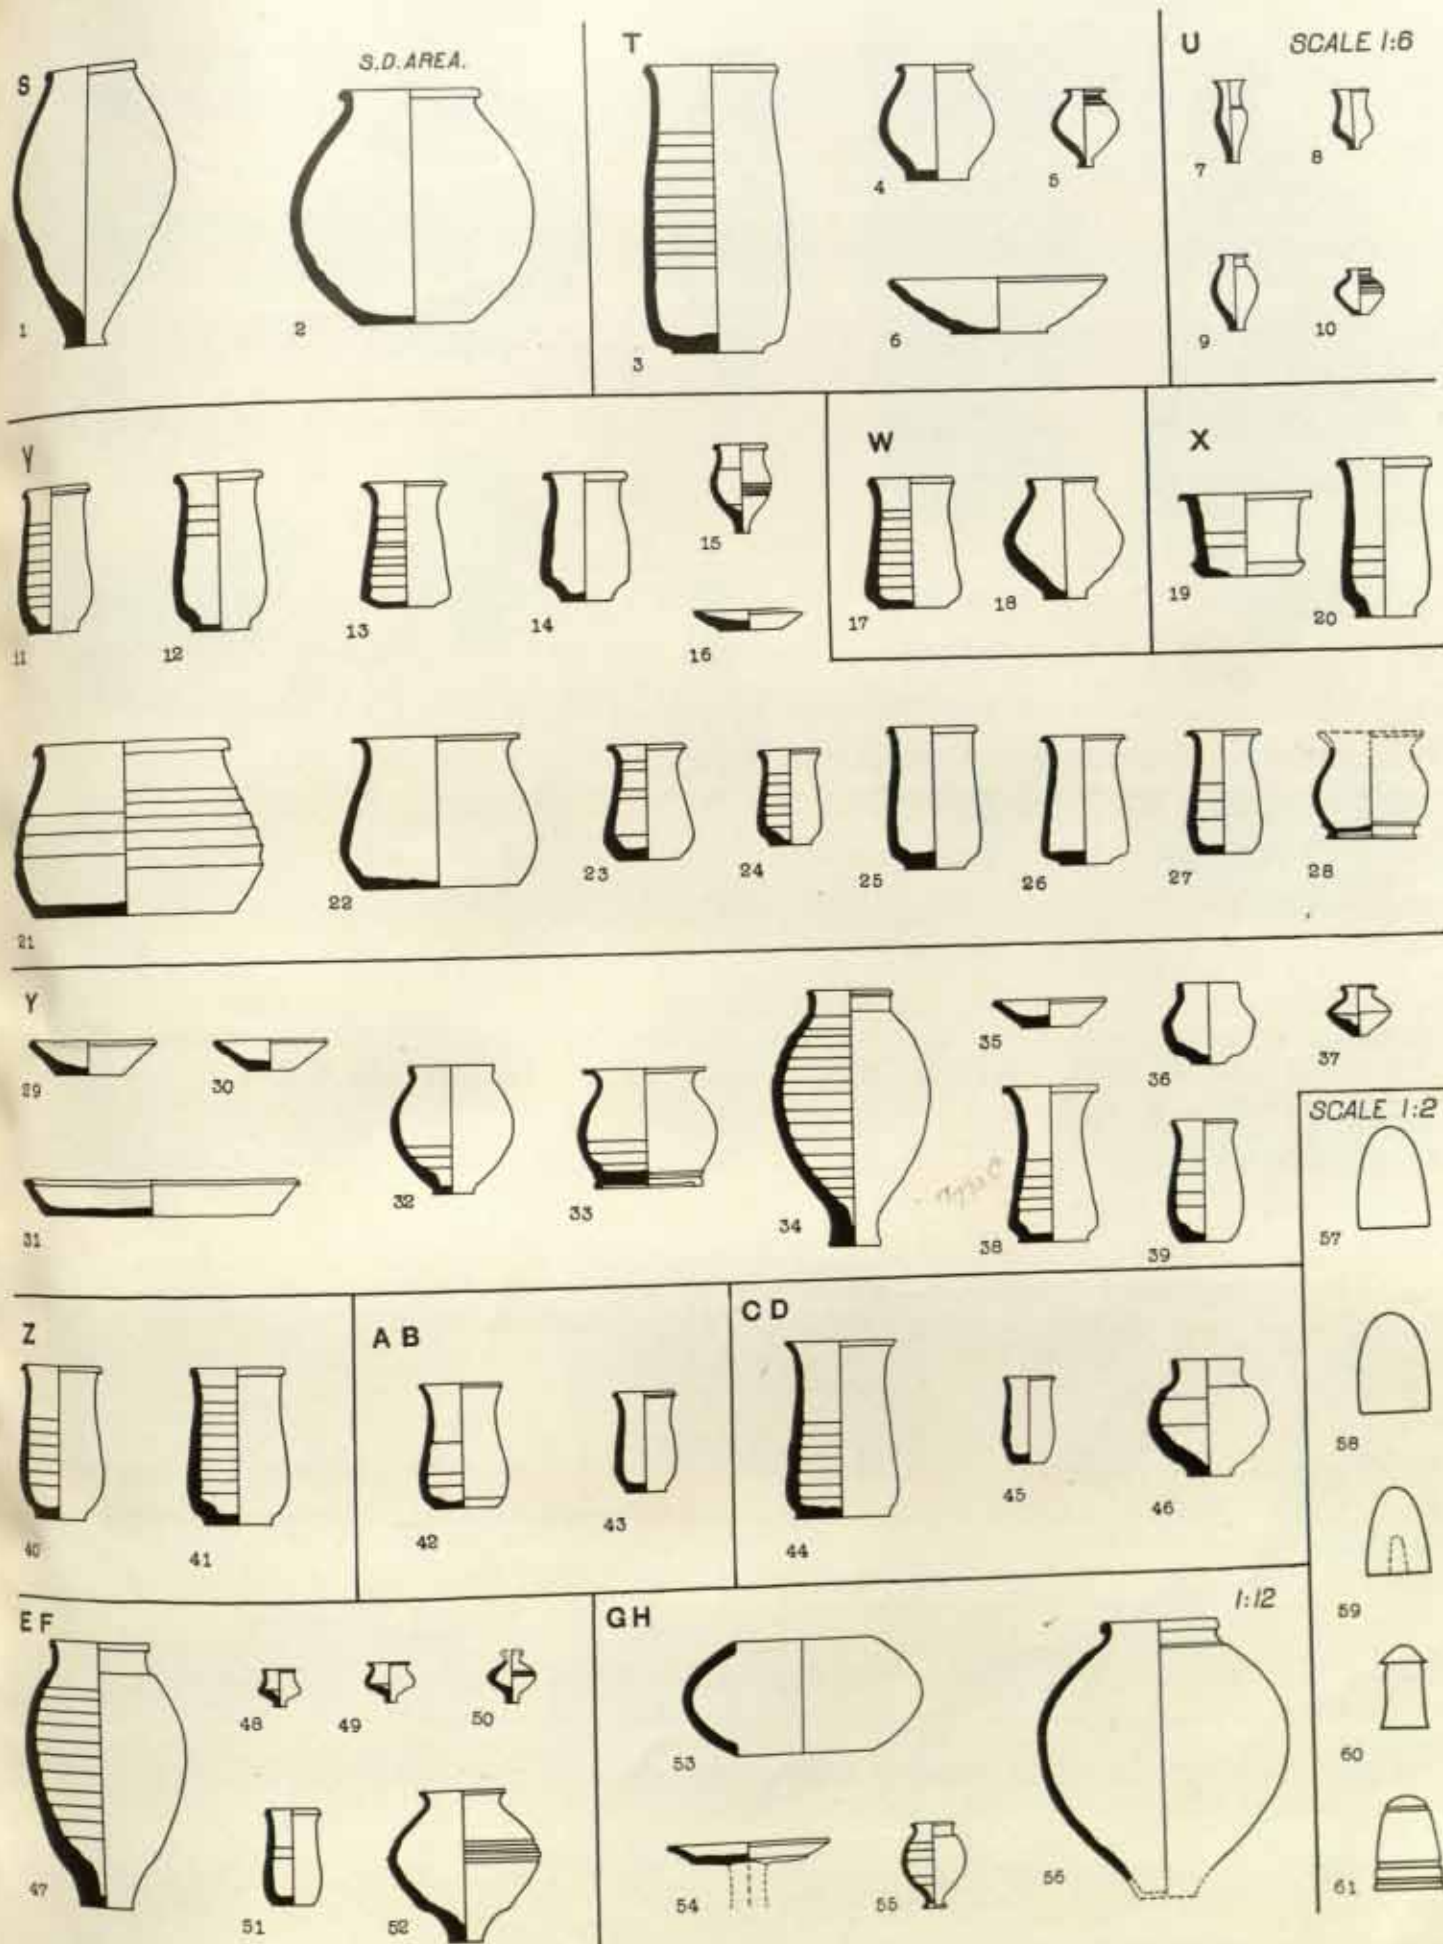 S
S.D. AREA.
1
2
T
3
4
5
6
U SCALE 1:6
7
8
9
10
V
11
12
13
14
15
16
W
17
18
X
19
20
21
22
23
24
25
26
27
28
Y
29
30
31
32
33
34
35
36
37
38
39
SCALE 1:2
57
58
59
60
61
Z
40
41
A B
42
43
C D
44
45
46
E F
47
48
49
50
51
52
GH
53
54
55
1:12
56